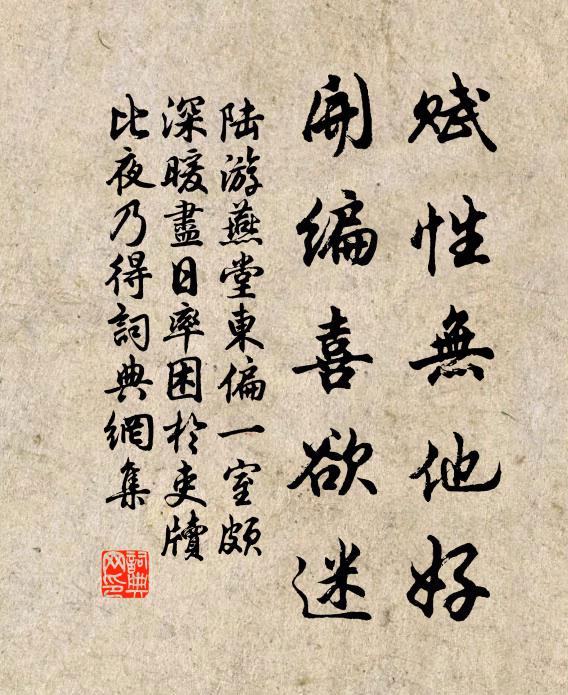 赋性無他好
開编喜欲迷
陆游燕堂東偏一室颇
深暖盡日率困於吏牍
比夜乃得詞典網集
詞典网印